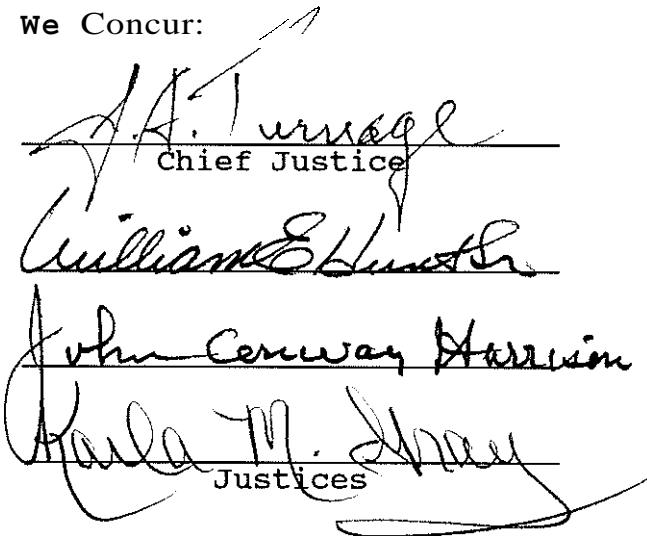 We Concur:
J. A. Turnage
Chief Justice
William E Hunt Sr
John Conway Harrison
Karla M. Gray
Justices